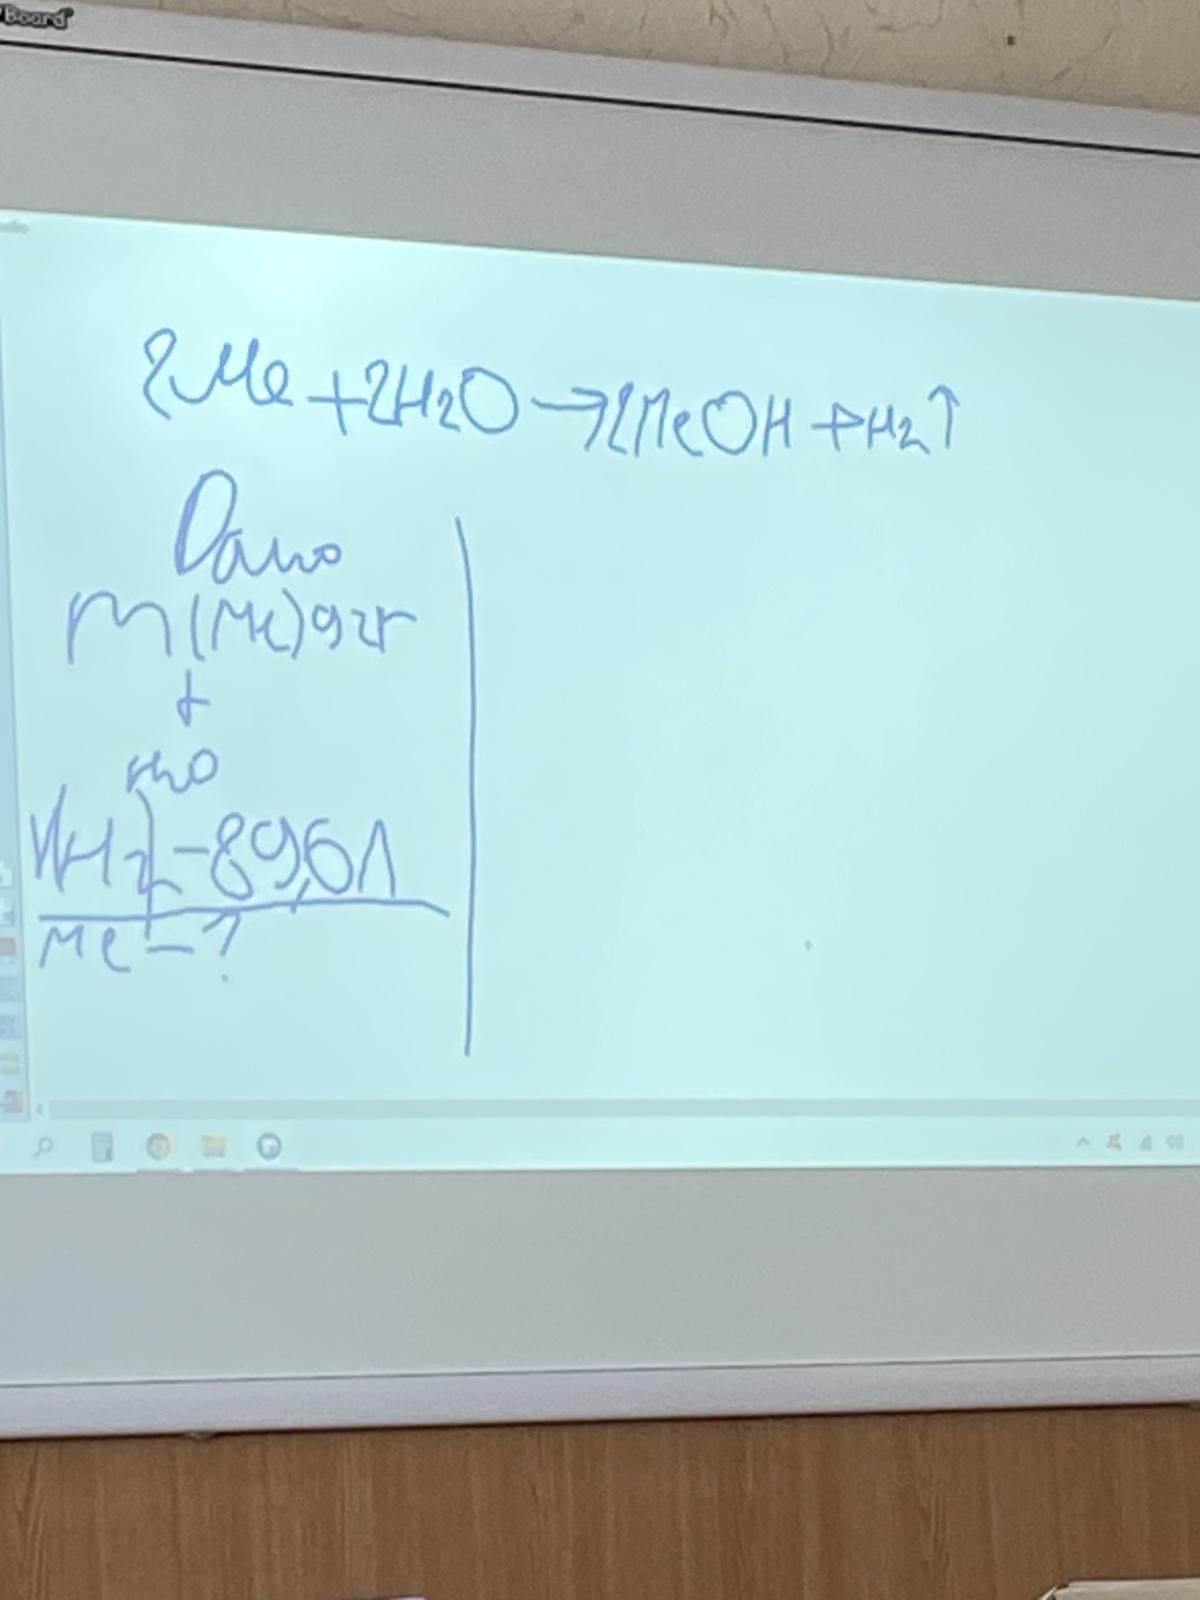 Board
2Me + 2H2O → 2MeOH + H2↑
Дано
m(Me) 92г
+
H2O
V(H2) - 89,6л
Me - ?